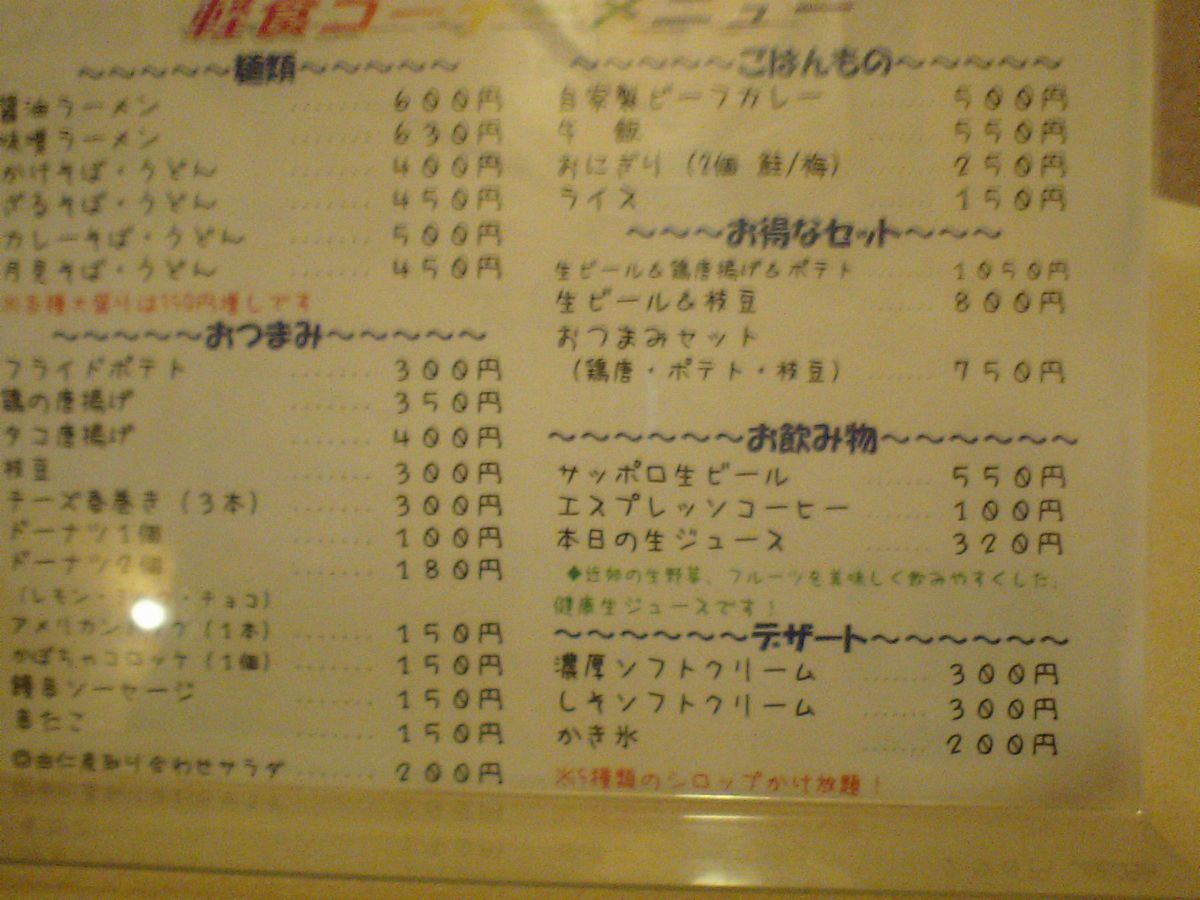 軽食コーナーメニュー
～～～～～麺類～～～～～
醤油ラーメン ……… 600円
味噌ラーメン ……… 630円
かけそば・うどん ……… 400円
ざるそば・うどん ……… 450円
カレーそば・うどん ……… 500円
月見そば・うどん ……… 450円
※各種大盛りは150円増しです
～～～～～おつまみ～～～～～
フライドポテト ……… 300円
鶏の唐揚げ ……… 350円
タコ唐揚げ ……… 400円
枝豆 ……… 300円
チーズ春巻き（3本） ……… 300円
ドーナツ1個 ……… 100円
ドーナツ2個 ……… 180円
（レモン・ ・チョコ）
アメリカンドック（1本） ……… 150円
かぼちゃコロッケ（1個） ……… 150円
ソーセージ ……… 150円
たこ ……… 150円
◎由仁産取り合わせサラダ ……… 200円
～～～～～ごはんもの～～～～～
自家製ビーフカレー ……… 500円
牛 飯 ……… 550円
おにぎり（2個 鮭/梅） ……… 250円
ライス ……… 150円
～～～お得なセット～～～
生ビール＆鶏唐揚げ＆ポテト ……… 1050円
生ビール＆枝豆 ……… 800円
おつまみセット
（鶏唐・ポテト・枝豆） ……… 750円
～～～～～～お飲み物～～～～～～
サッポロ生ビール ……… 550円
エスプレッソコーヒー ……… 100円
本日の生ジュース ……… 320円
◆近郊の生野菜、フルーツを美味しく飲みやすくした、
健康生ジュースです！
～～～～～～デザート～～～～～～
濃厚ソフトクリーム ……… 300円
しそソフトクリーム ……… 300円
かき氷 ……… 200円
※5種類のシロップかけ放題！